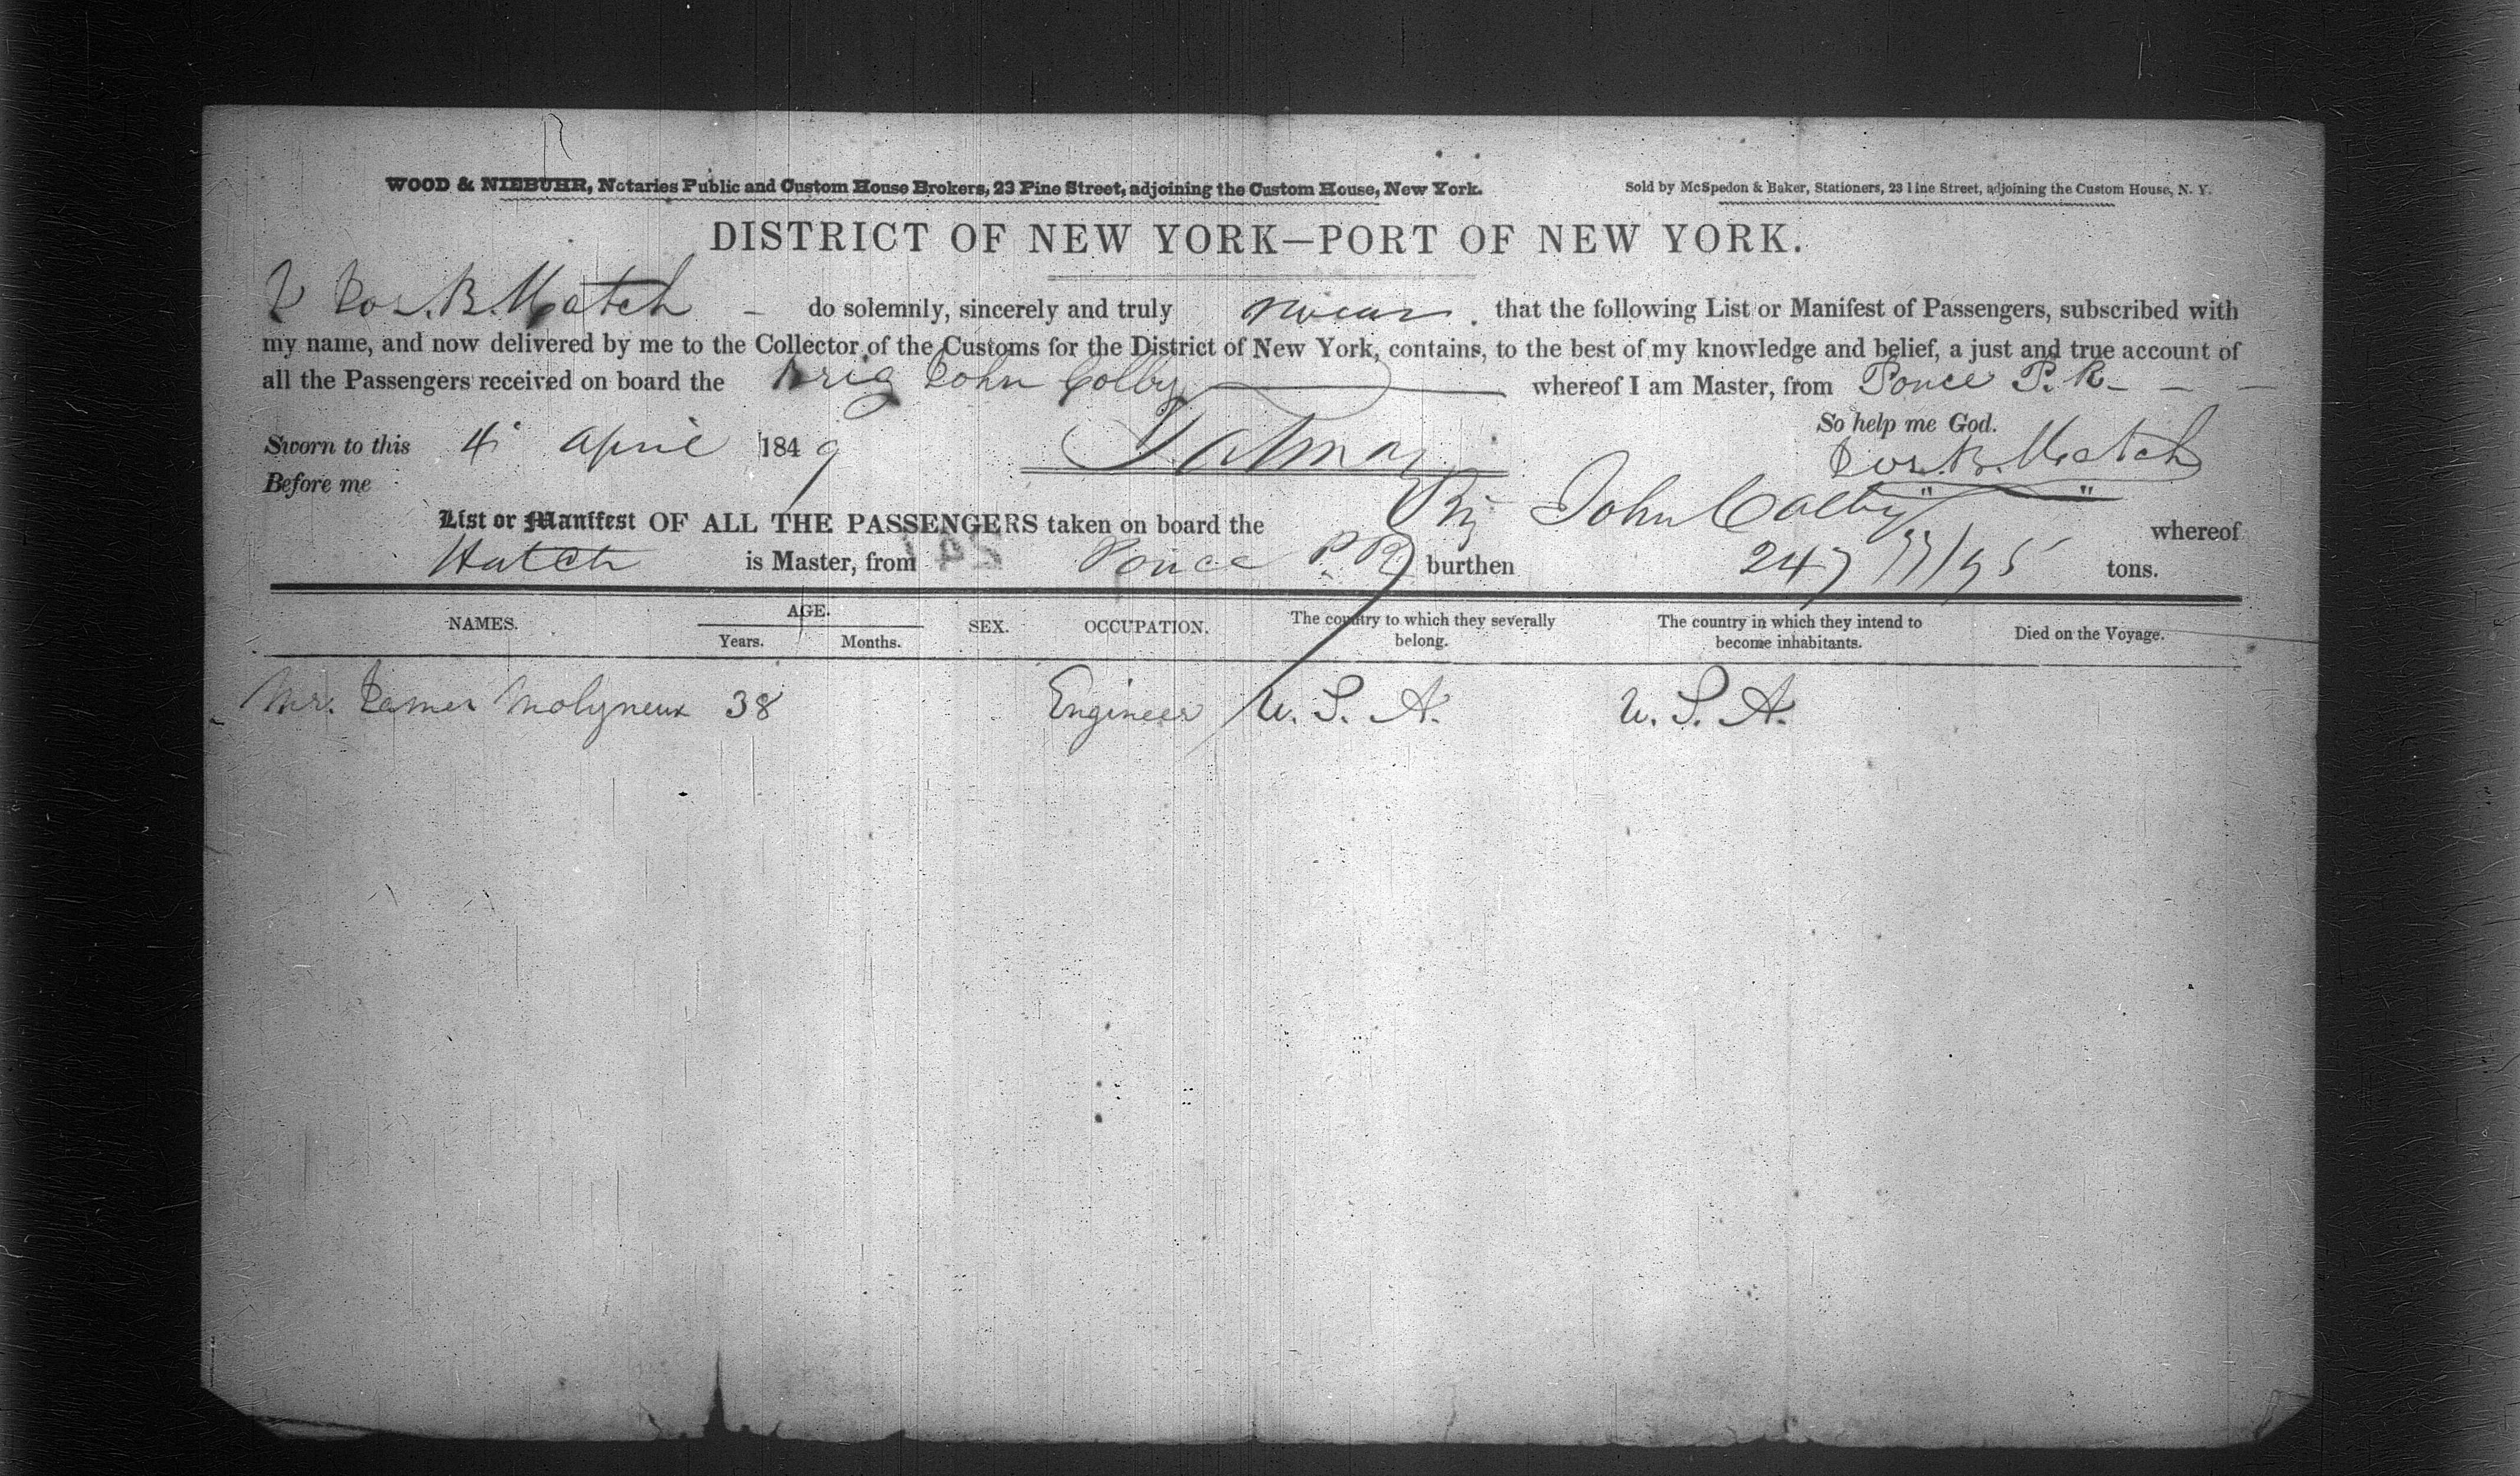 WOOD & NIEBUHR, Notaries Public and Custom House Brokers, 23 Pine Street, adjoining the Custom House, New York.
Sold by McSpedon & Baker, Stationers, 23 Pine Street, adjoining the Custom House, N. Y.
DISTRICT OF NEW YORK—PORT OF NEW YORK.
I Jos. B. Hatch - do solemnly, sincerely and truly swear that the following List or Manifest of Passengers, subscribed with
my name, and now delivered by me to the Collector of the Customs for the District of New York, contains, to the best of my knowledge and belief, a just and true account of
all the Passengers received on board the Brig John Colby whereof I am Master, from Ponce P. R.
So help me God.
Sworn to this 4 April 1849 Jos. B. Hatch
Before me
List or Manifest OF ALL THE PASSENGERS taken on board the Brig John Colby whereof
Hatch is Master, from Ponce P. R. burthen 247 tons.
NAMES. AGE. Years. Months. SEX. OCCUPATION. The country to which they severally belong. The country in which they intend to become inhabitants. Died on the Voyage.
Mr. James Molyneux 38 Engineer U. S. A. U. S. A.